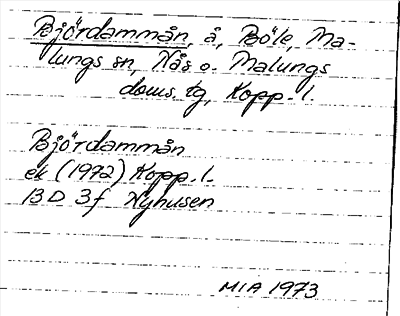 Björdammån, å, Böle, Ma-
lungs sn, Nås o. Malungs
doms. tg, Kopp. l.
Björdammån
ek (1972) Kopp. l.
13 D 3f Nyhusen
MIA 1973